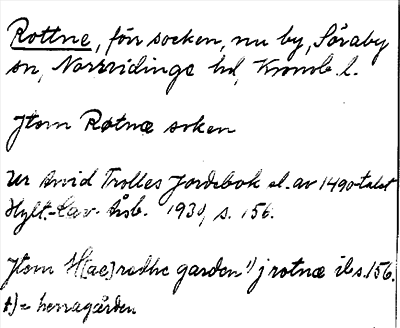 Rottne, förr socken, nu by, Söraby
sn, Norrvidinge hd, Kronob. l.
Jtem Rotnæ soken
Ur Arvid Trolles Jordebok sl. av 1490-talet
Hylt.-Cav. Årsb. 1930, s. 156.
Jtem H[ae]radhe garden 1) j rotnæ ib s. 156.
1) = herragården